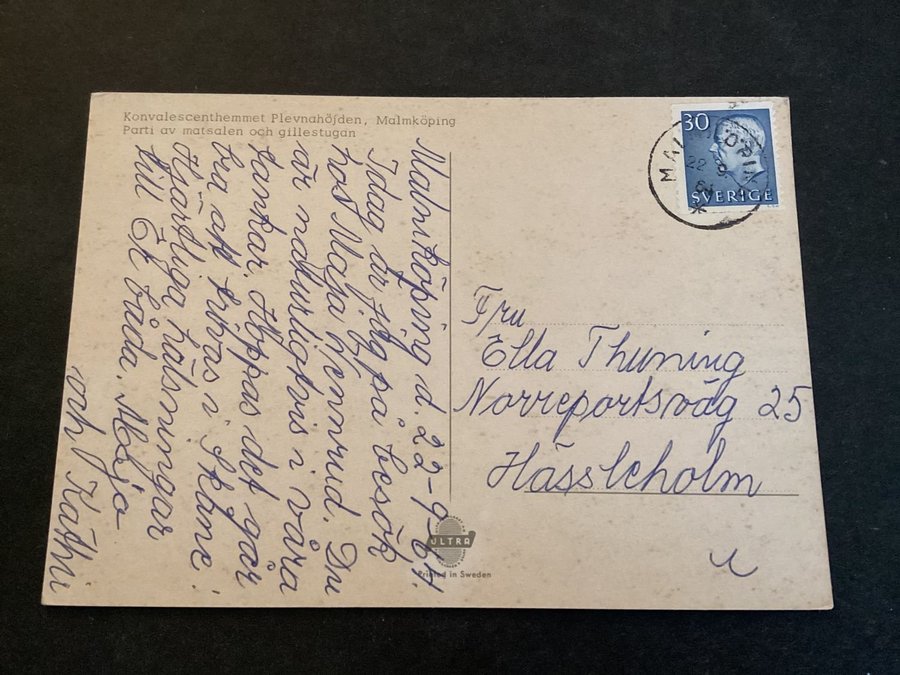 Konvalescenthemmet Plevnahöjden, Malmköping
Parti av matsalen och gillestugan
Malmköping d. 22-9-64.
Idag är jag på besök
hos Maja Wennrud. Du
är naturligtvis i våra
tankar. Hoppas det går
bra att trivas i Skåne.
Hjärtliga hälsningar
till Er båda. Maja
och Kathi
30
SVERIGE
22 9
Fru
Ella Thuning
Norreportsväg 25
Hässleholm
ULTRA
Printed in Sweden